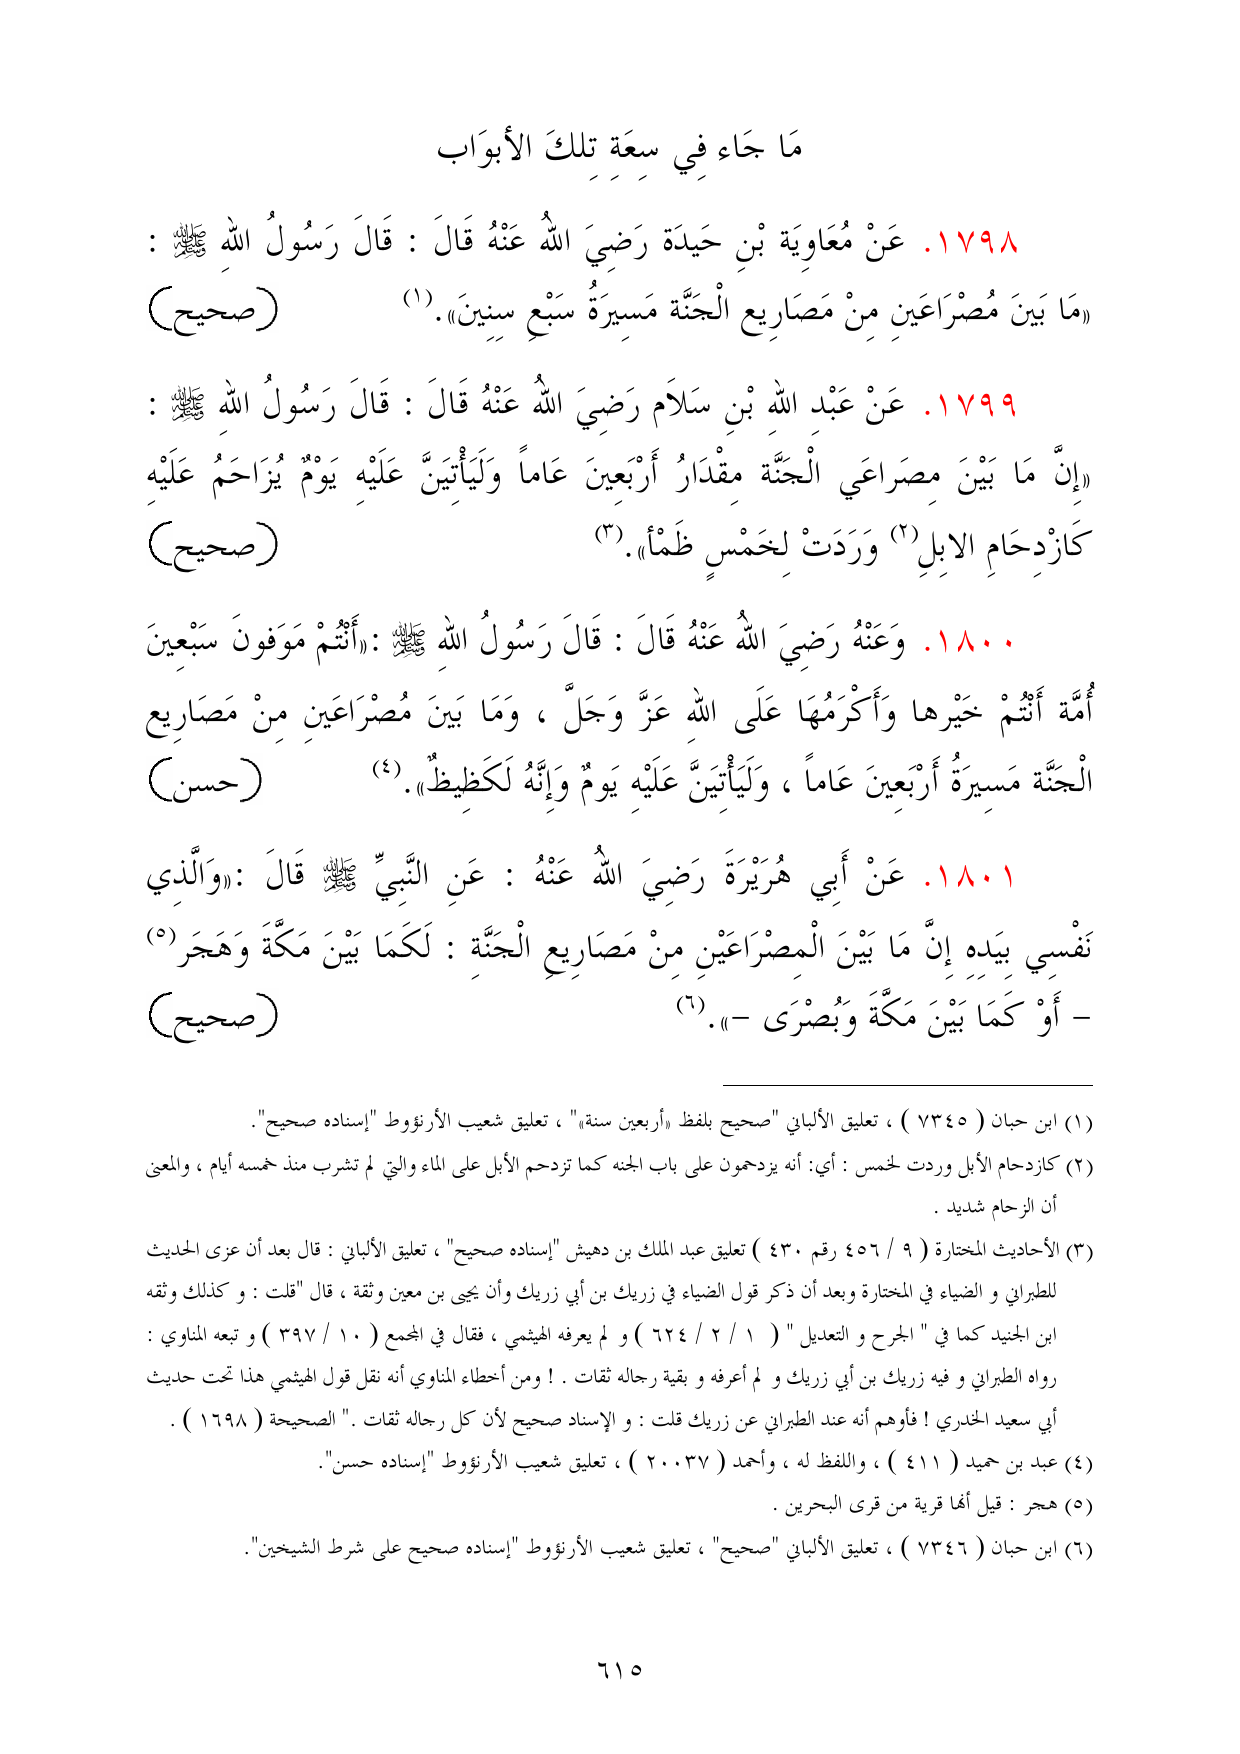 مَا جَاء فِي سِعَةِ تِلكَ الأبوَاب
١٧٩٨. عَنْ مُعَاوِيَة بْنِ حَيدَة رَضِيَ اللهُ عَنْهُ قَالَ : قَالَ رَسُولُ اللهِ ﷺ :
«مَا بَينَ مُصْرَاعَينِ مِنْ مَصَارِيع الْجَنَّة مَسِيرَةُ سَبْعِ سِنِينَ».(١) (صحيح)
١٧٩٩. عَنْ عَبْدِ اللهِ بْنِ سَلَام رَضِيَ اللهُ عَنْهُ قَالَ : قَالَ رَسُولُ اللهِ ﷺ :
«إِنَّ مَا بَيْنَ مِصَراعَي الْجَنَّة مِقْدَارُ أَرْبَعِينَ عَاماً وَلَيَأْتِيَنَّ عَلَيْهِ يَوْمٌ يُزَاحَمُ عَلَيْهِ
كَازْدِحَامِ الابِلِ(٢) وَرَدَتْ لِخَمْسٍ ظَمْأ».(٣) (صحيح)
١٨٠٠. وَعَنْهُ رَضِيَ اللهُ عَنْهُ قَالَ : قَالَ رَسُولُ اللهِ ﷺ :«أَنْتُمْ مَوَفونَ سَبْعِينَ
أُمَّة أَنْتُمْ خَيْرها وَأَكْرَمُهَا عَلَى اللهِ عَزَّ وَجَلَّ ، وَمَا بَينَ مُصْرَاعَينِ مِنْ مَصَارِيع
الْجَنَّة مَسِيرَةُ أَرْبَعِينَ عَاماً ، وَلَيَأْتِيَنَّ عَلَيْهِ يَومٌ وَإِنَّهُ لَكَظِيظٌ».(٤) (حسن)
١٨٠١. عَنْ أَبي هُرَيْرَةَ رَضِيَ اللهُ عَنْهُ : عَنِ النَّبِيِّ ﷺ قَالَ :«وَالَّذِي
نَفْسِي بِيَدِهِ إِنَّ مَا بَيْنَ الْمِصْرَاعَيْنِ مِنْ مَصَارِيعِ الْجَنَّةِ : لَكَمَا بَيْنَ مَكَّةَ وَهَجَر(٥)
– أَوْ كَمَا بَيْنَ مَكَّةَ وَبُصْرَى –».(٦) (صحيح)
(١) ابن حبان ( ٧٣٤٥ ) ، تعليق الألباني "صحيح بلفظ «أربعين سنة»" ، تعليق شعيب الأرنؤوط "إسناده صحيح".
(٢) كازدحام الأبل وردت لخمس : أي: أنه يزدحمون على باب الجنه كما تزدحم الأبل على الماء والتي لم تشرب منذ خمسه أيام ، والمعنى
أن الزحام شديد .
(٣) الأحاديث المختارة ( ٩ / ٤٥٦ رقم ٤٣٠ ) تعليق عبد الملك بن دهيش "إسناده صحيح" ، تعليق الألباني : قال بعد أن عزى الحديث
للطبراني و الضياء في المختارة وبعد أن ذكر قول الضياء في زريك بن أبي زريك وأن يحيى بن معين وثقة ، قال "قلت : و كذلك وثقه
ابن الجنيد كما في " الجرح و التعديل " ( ١ / ٢ / ٦٢٤ ) و لم يعرفه الهيثمي ، فقال في المجمع ( ١٠ / ٣٩٧ ) و تبعه المناوي :
رواه الطبراني و فيه زريك بن أبي زريك و لم أعرفه و بقية رجاله ثقات . ! ومن أخطاء المناوي أنه نقل قول الهيثمي هذا تحت حديث
أبي سعيد الخدري ! فأوهم أنه عند الطبراني عن زريك قلت : و الإسناد صحيح لأن كل رجاله ثقات ." الصحيحة ( ١٦٩٨ ) .
(٤) عبد بن حميد ( ٤١١ ) ، واللفظ له ، وأحمد ( ٢٠٠٣٧ ) ، تعليق شعيب الأرنؤوط "إسناده حسن".
(٥) هجر : قيل أنها قرية من قرى البحرين .
(٦) ابن حبان ( ٧٣٤٦ ) ، تعليق الألباني "صحيح" ، تعليق شعيب الأرنؤوط "إسناده صحيح على شرط الشيخين".
٦١٥